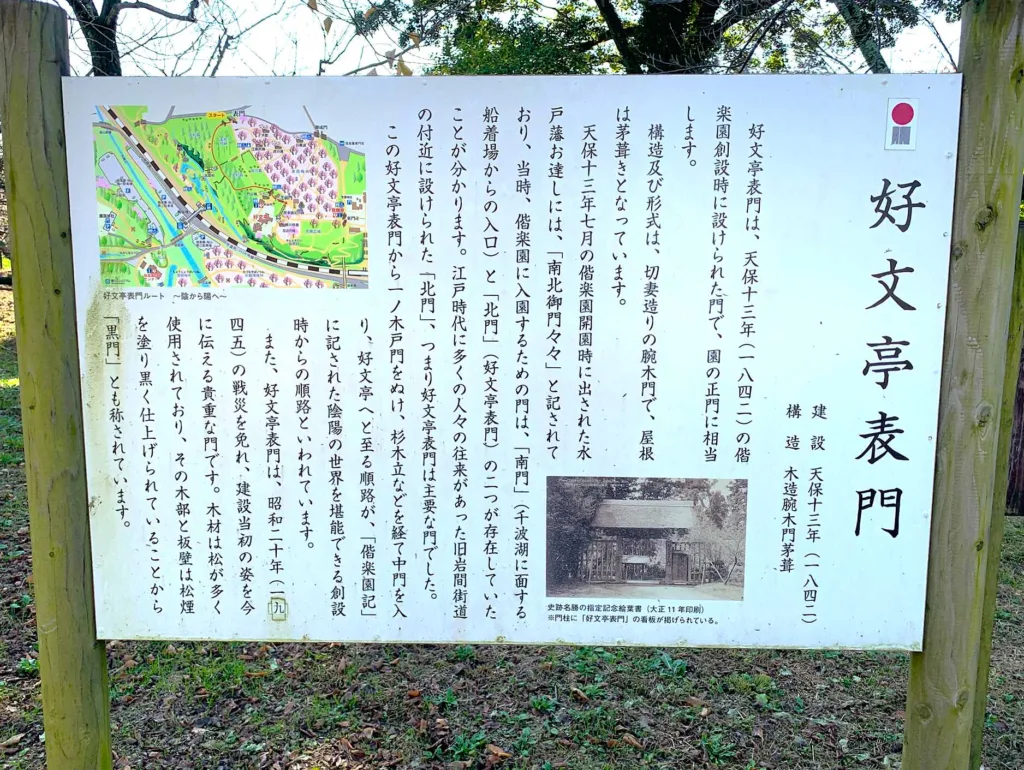 好文亭表門
建設 天保十三年(一八四二)
構造 木造腕木門茅葺
好文亭表門は、天保十三年(一八四二)の偕
楽園創設時に設けられた門で、園の正門に相当
します。
構造及び形式は、切妻造りの腕木門で、屋根
は茅葺きとなっています。
天保十三年七月の偕楽園開園時に出された水
戸藩お達しには、「南北御門々々」と記されて
おり、当時、偕楽園に入園するための門は、「南門」(千波湖に面する
船着場からの入口)と「北門」(好文亭表門)の二つが存在していた
ことが分かります。江戸時代に多くの人々の往来があった旧岩間街道
の付近に設けられた「北門」、つまり好文亭表門は主要な門でした。
この好文亭表門から一ノ木戸門をぬけ、杉木立などを経て中門を入
り、好文亭へと至る順路が、「偕楽園記」
に記された陰陽の世界を堪能できる創設
時からの順路といわれています。
また、好文亭表門は、昭和二十年(一九
四五)の戦災を免れ、建設当初の姿を今
に伝える貴重な門です。木材は松が多く
使用されており、その木部と板壁は松煙
を塗り黒く仕上げられていることから
「黒門」とも称されています。
史跡名勝の指定記念絵葉書(大正11年印刷)
※門柱に「好文亭表門」の看板が掲げられている。
スタート
好文亭表門ルート ～陰から陽へ～